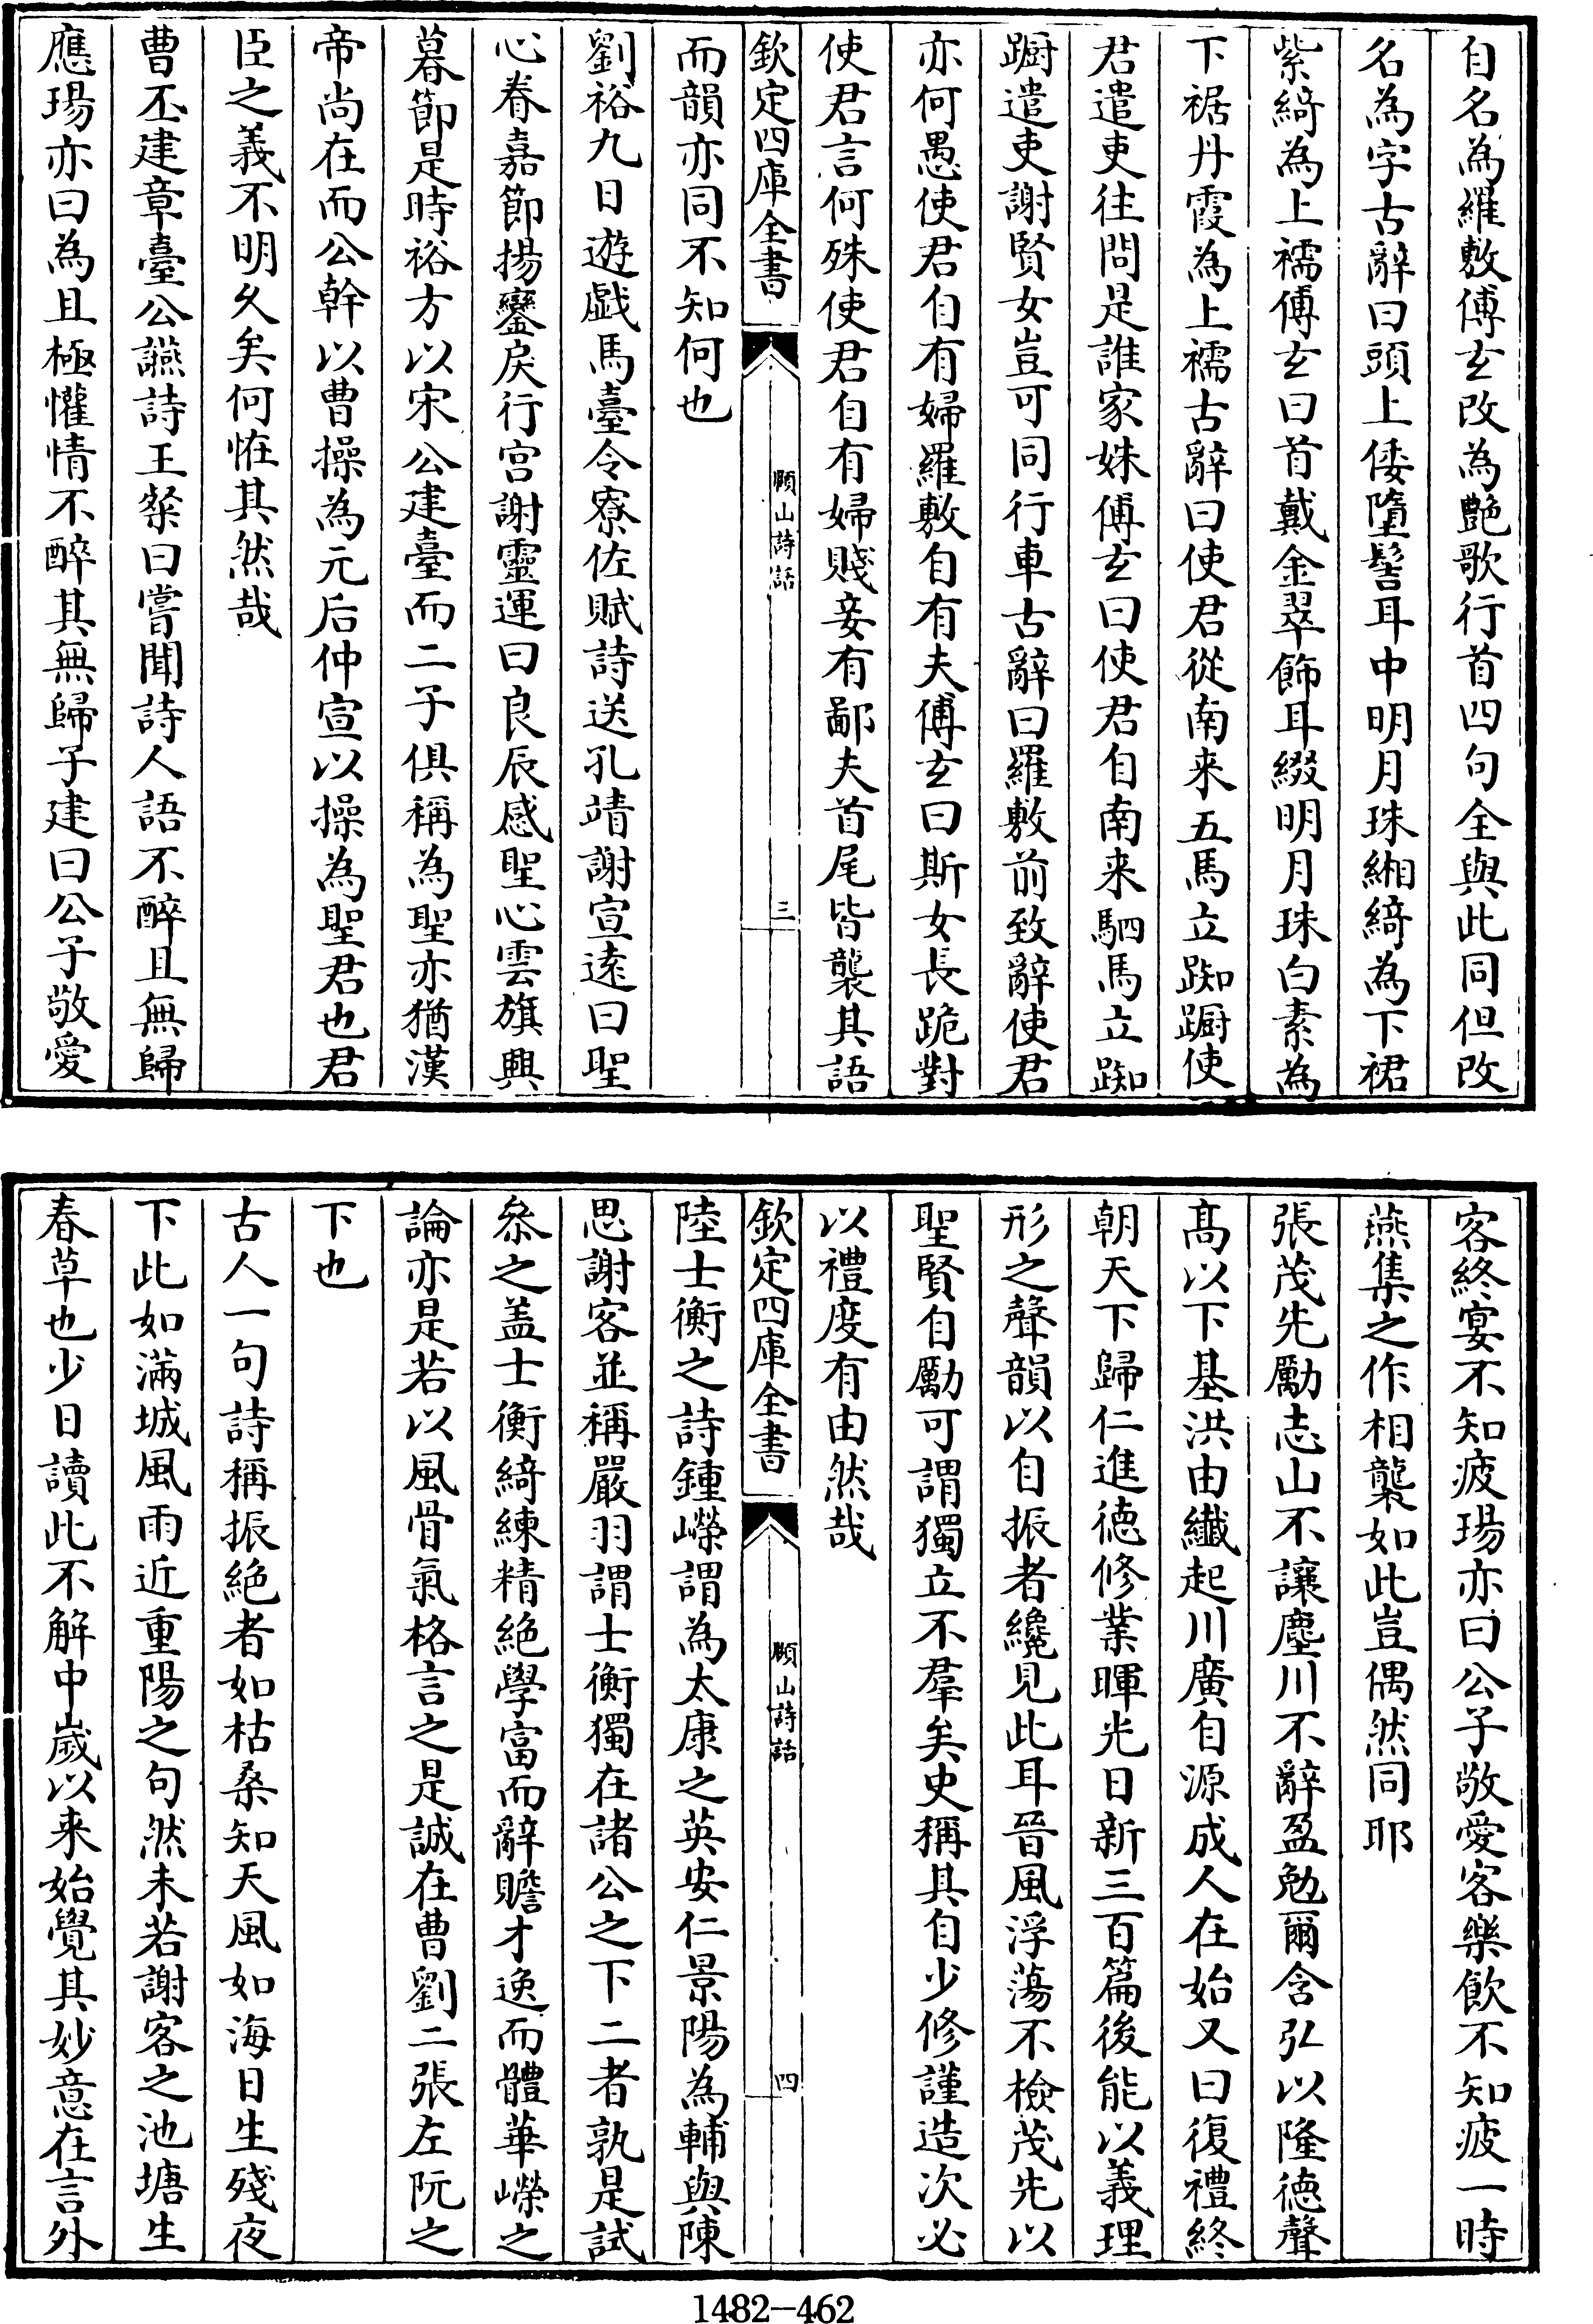 自名為羅敷傅玄改為艶歌行首四句全與此同但改
名為字古辭曰頭上倭墮髻耳中明月珠緗綺為下裙
紫綺為上襦傅玄曰首戴金翠飾耳綴明月珠白素為
下裾丹霞為上襦古辭曰使君從南来五馬立踟蹰使
君遣吏往問是誰家姝傅玄曰使君自南来駟馬立踟
蹰遣吏謝賢女豈可同行車古辭曰羅敷前致辭使君
亦何愚使君自有婦羅敷自有夫傅玄曰斯女長跪對
使君言何殊使君自有婦賤妾有鄙夫首尾皆襲其語
欽定四庫全書
頤山詩話
三
而韻亦同不知何也
劉裕九日遊戯馬臺令寮佐賦詩送孔靖謝宣逺曰聖
心眷嘉節揚鑾戾行宫謝靈運曰良辰感聖心雲旗興
暮節是時裕方以宋公建臺而二子俱稱為聖亦猶漢
帝尚在而公幹以曹操為元后仲宣以操為聖君也君
臣之義不明久矣何恠其然哉
曹丕建章臺公讌詩王粲曰嘗聞詩人語不醉且無歸
應瑒亦曰為且極懽情不醉其無歸子建曰公子敬愛
客終宴不知疲瑒亦曰公子敬愛客樂飲不知疲一時
燕集之作相襲如此豈偶然同耶
張茂先勵志山不讓塵川不辭盈勉爾含弘以隆徳聲
髙以下基洪由纎起川廣自源成人在始又曰復禮終
朝天下歸仁進徳修業暉光日新三百篇後能以義理
形之聲韻以自振者纔見此耳晉風浮蕩不檢茂先以
聖賢自勵可謂獨立不羣矣史稱其自少修謹造次必
以禮度有由然哉
欽定四庫全書
頤山詩話
四
陸士衡之詩鍾嶸謂為太康之英安仁景陽為輔與陳
思謝客並稱嚴羽謂士衡獨在諸公之下二者孰是試
叅之盖士衡綺練精絶學富而辭贍才逸而體華嶸之
論亦是若以風骨氣格言之是誠在曹劉二張左阮之
下也
古人一句詩稱振絶者如枯桑知天風如海日生殘夜
下此如滿城風雨近重陽之句然未若謝客之池塘生
春草也少日讀此不解中嵗以来始覺其妙意在言外
1482-462